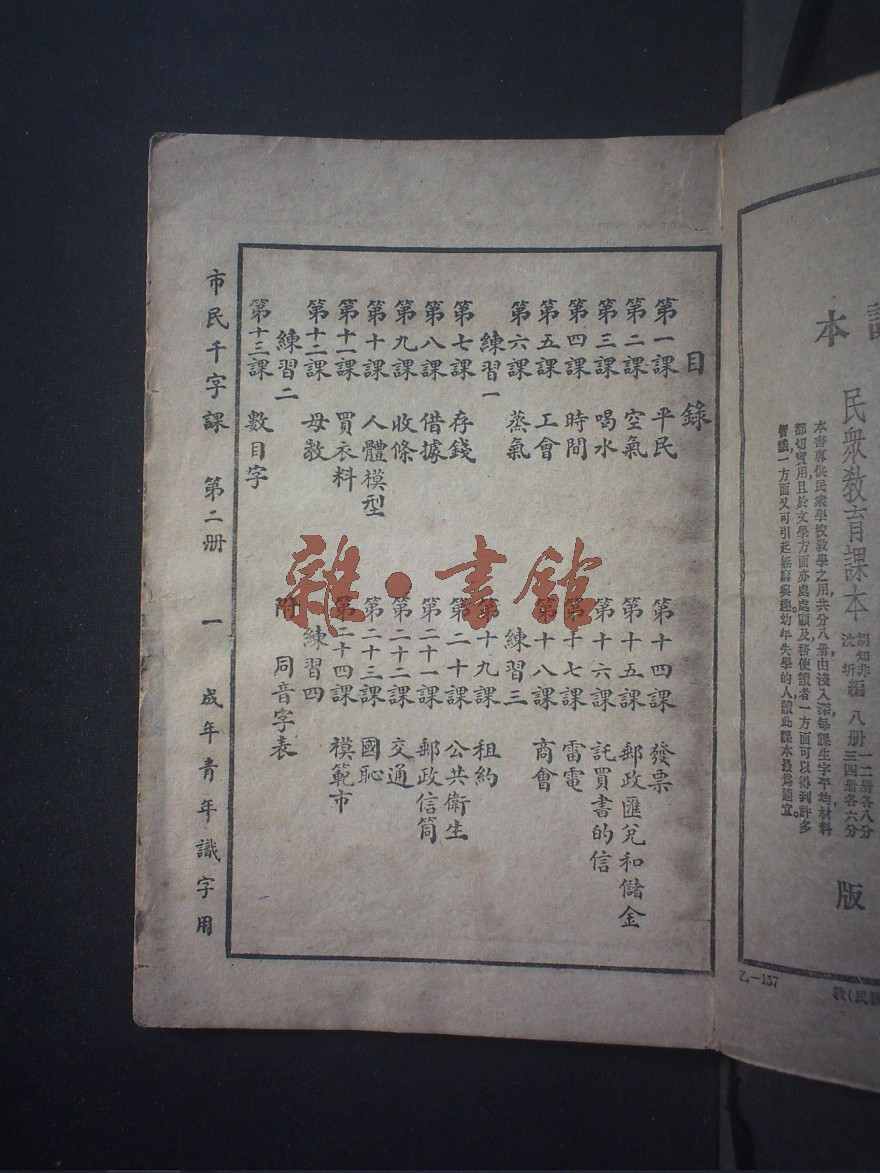 目錄
第一課 平民
第二課 空氣
第三課 喝水
第四課 時間
第五課 工會
第六課 蒸氣
練習一
第七課 存錢
第八課 借據
第九課 收條
第十課 人體模型
第十一課 買衣料
第十二課 母教
練習二
第十三課 數目字
第十四課 發票
第十五課 郵政匯兌和儲金
第十六課 託買書的信
第十七課 雷電
第十八課 商會
練習三
第十九課 租約
第二十課 公共衛生
第二十一課 郵政信筒
第二十二課 交通
第二十三課 國恥
第二十四課 模範市
練習四
附 同音字表
市民千字課 第二册 一 成年青年識字用
雜·書館
本
民衆教育課本
沈圻編 八册 一二册各八分 三四册各六分
本書專供民衆學校教學之用共分八册由淺入深每課生字平均材料
都切實用且於文學方面亦處處顧及務使讀者一方面可以得到許多
智識一方面又可引起無窮興趣幼年失學的人讀此課本最爲適宜。
版
乙—157